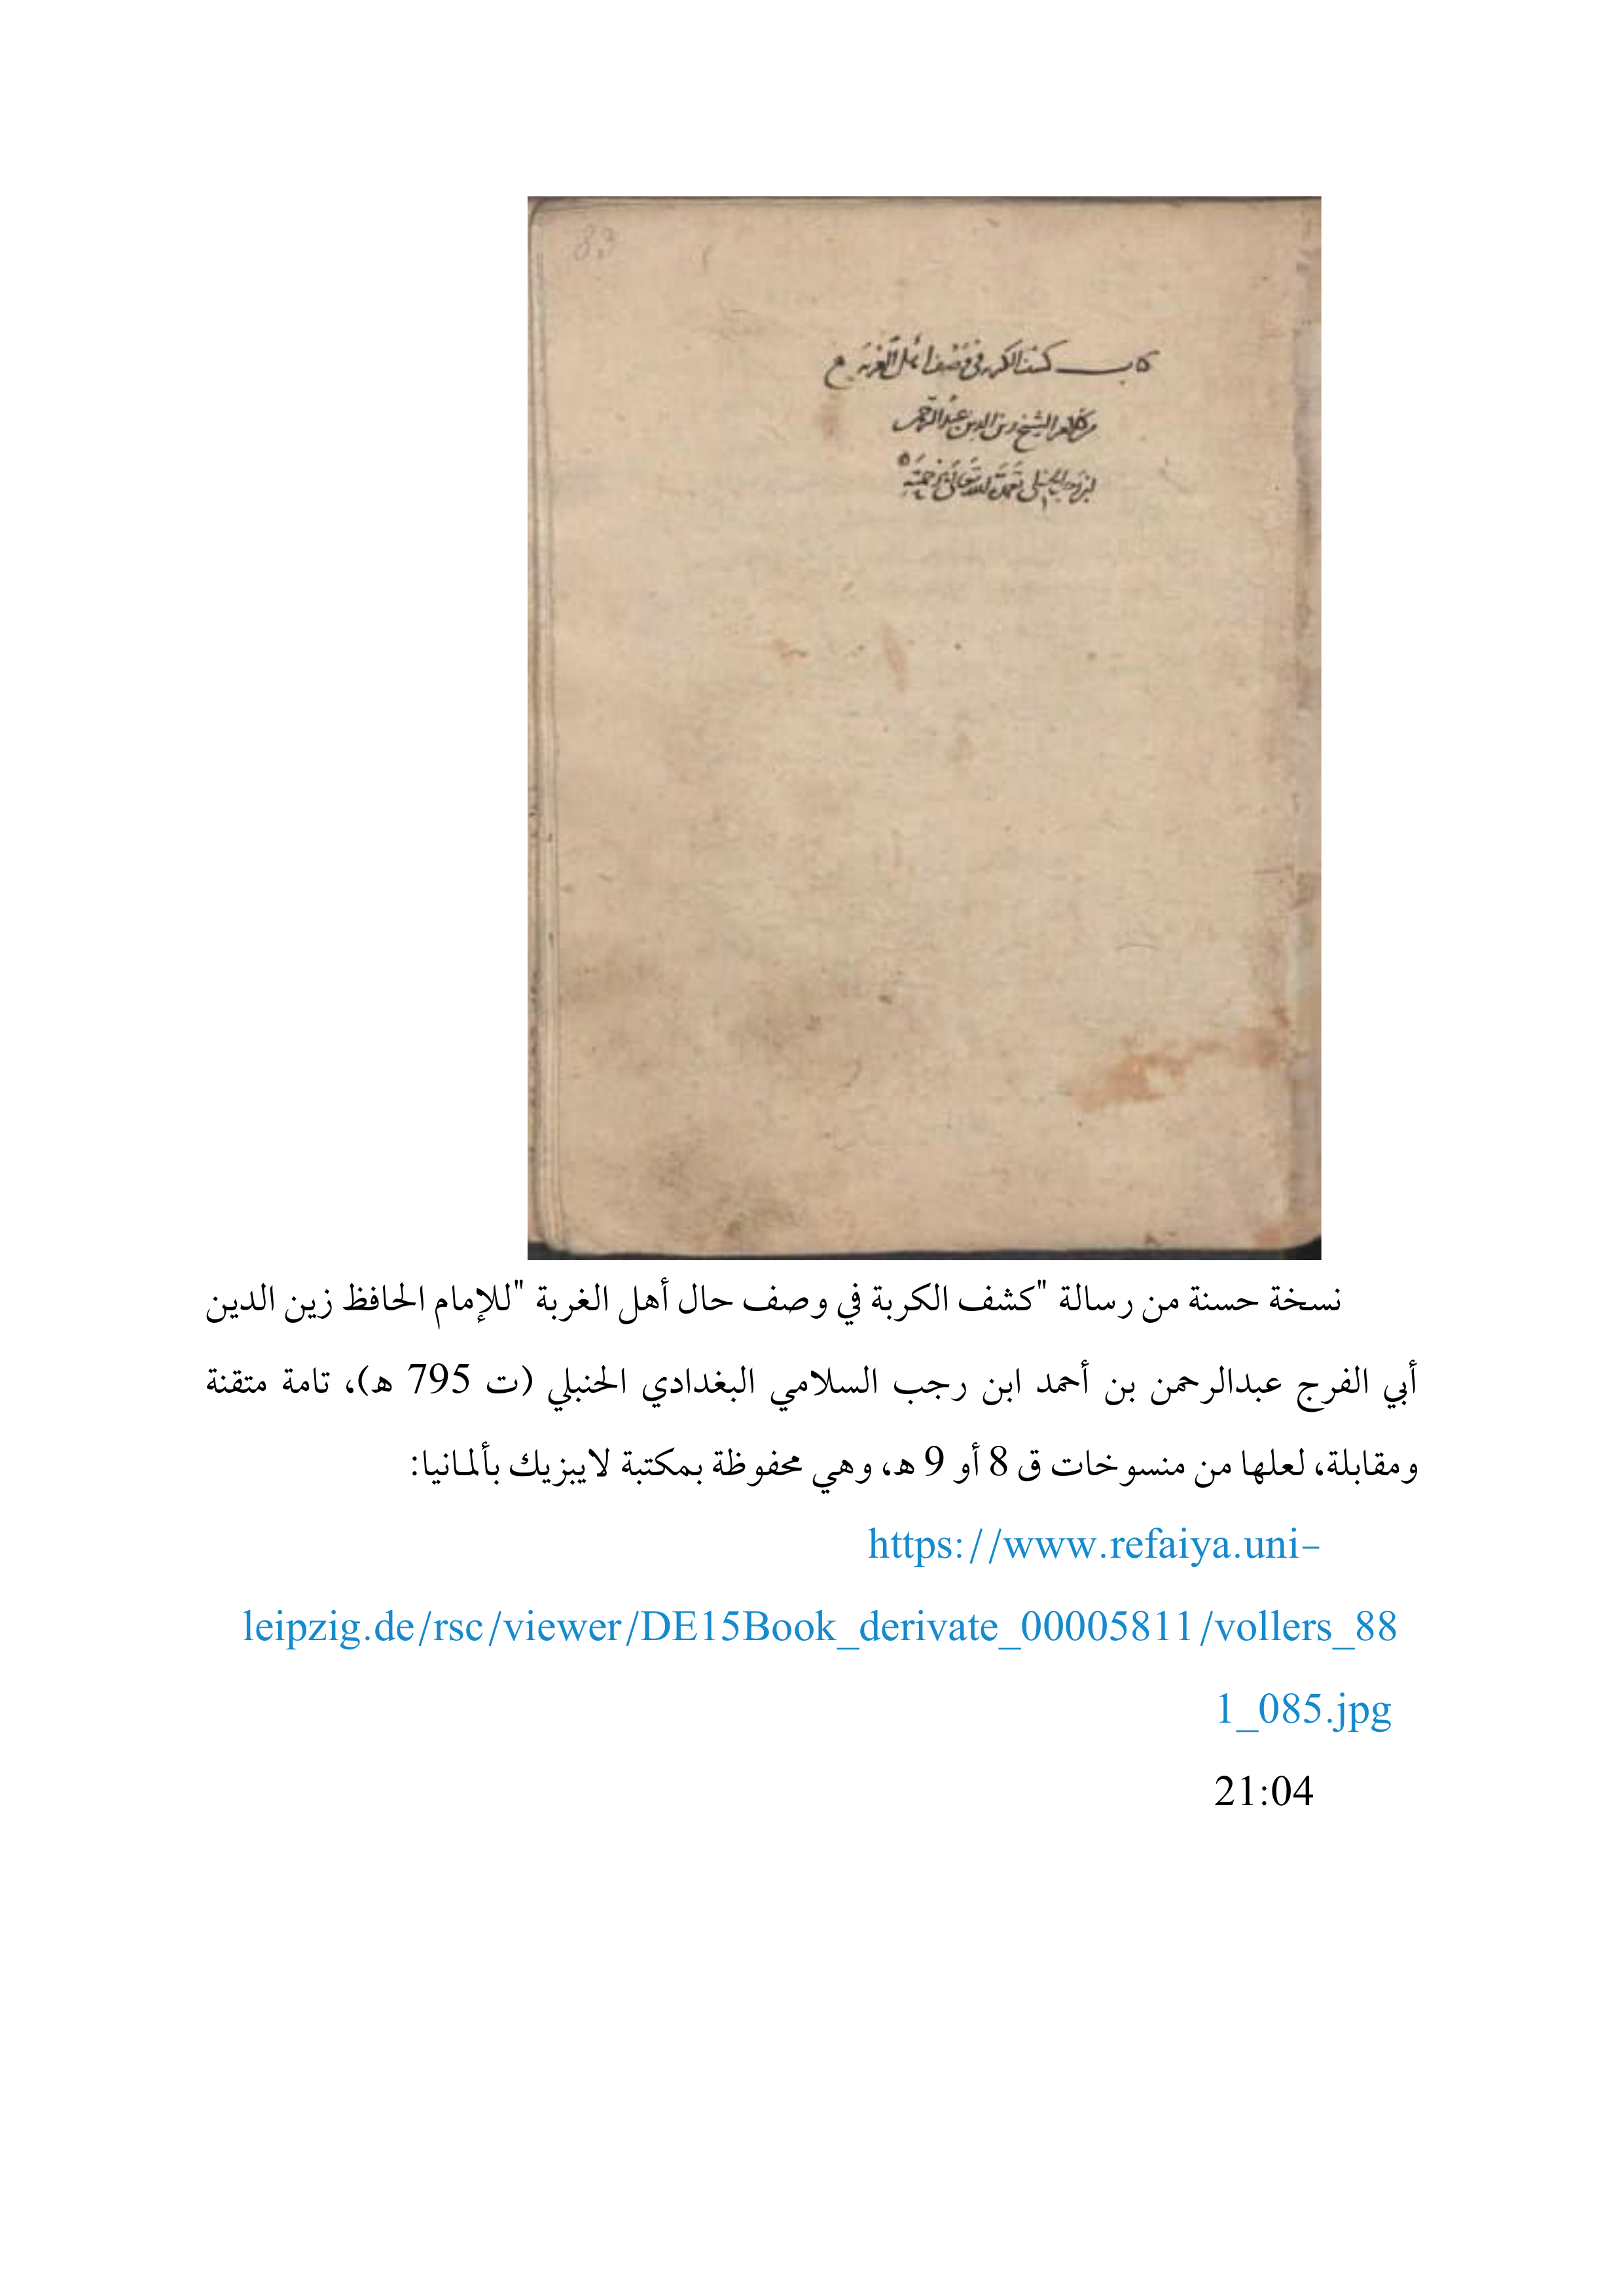 83
كتاب كشف الكربه في وصف أهل الغربه
من كلام الشيخ زين الدين عبد الرحمن
ابن رجب الحنبلي تغمده الله تعالى برحمته
نسخة حسنة من رسالة "كشف الكربة في وصف حال أهل الغربة "للإمام الحافظ زين الدين
أبي الفرج عبدالرحمن بن أحمد ابن رجب السلامي البغدادي الحنبلي (ت 795 هـ)، تامة متقنة
ومقابلة، لعلها من منسوخات ق 8 أو 9 هـ، وهي محفوظة بمكتبة لايبزيك بألمانيا:
https://www.refaiya.uni-
leipzig.de/rsc/viewer/DE15Book_derivate_00005811/vollers_88
1_085.jpg
21:04